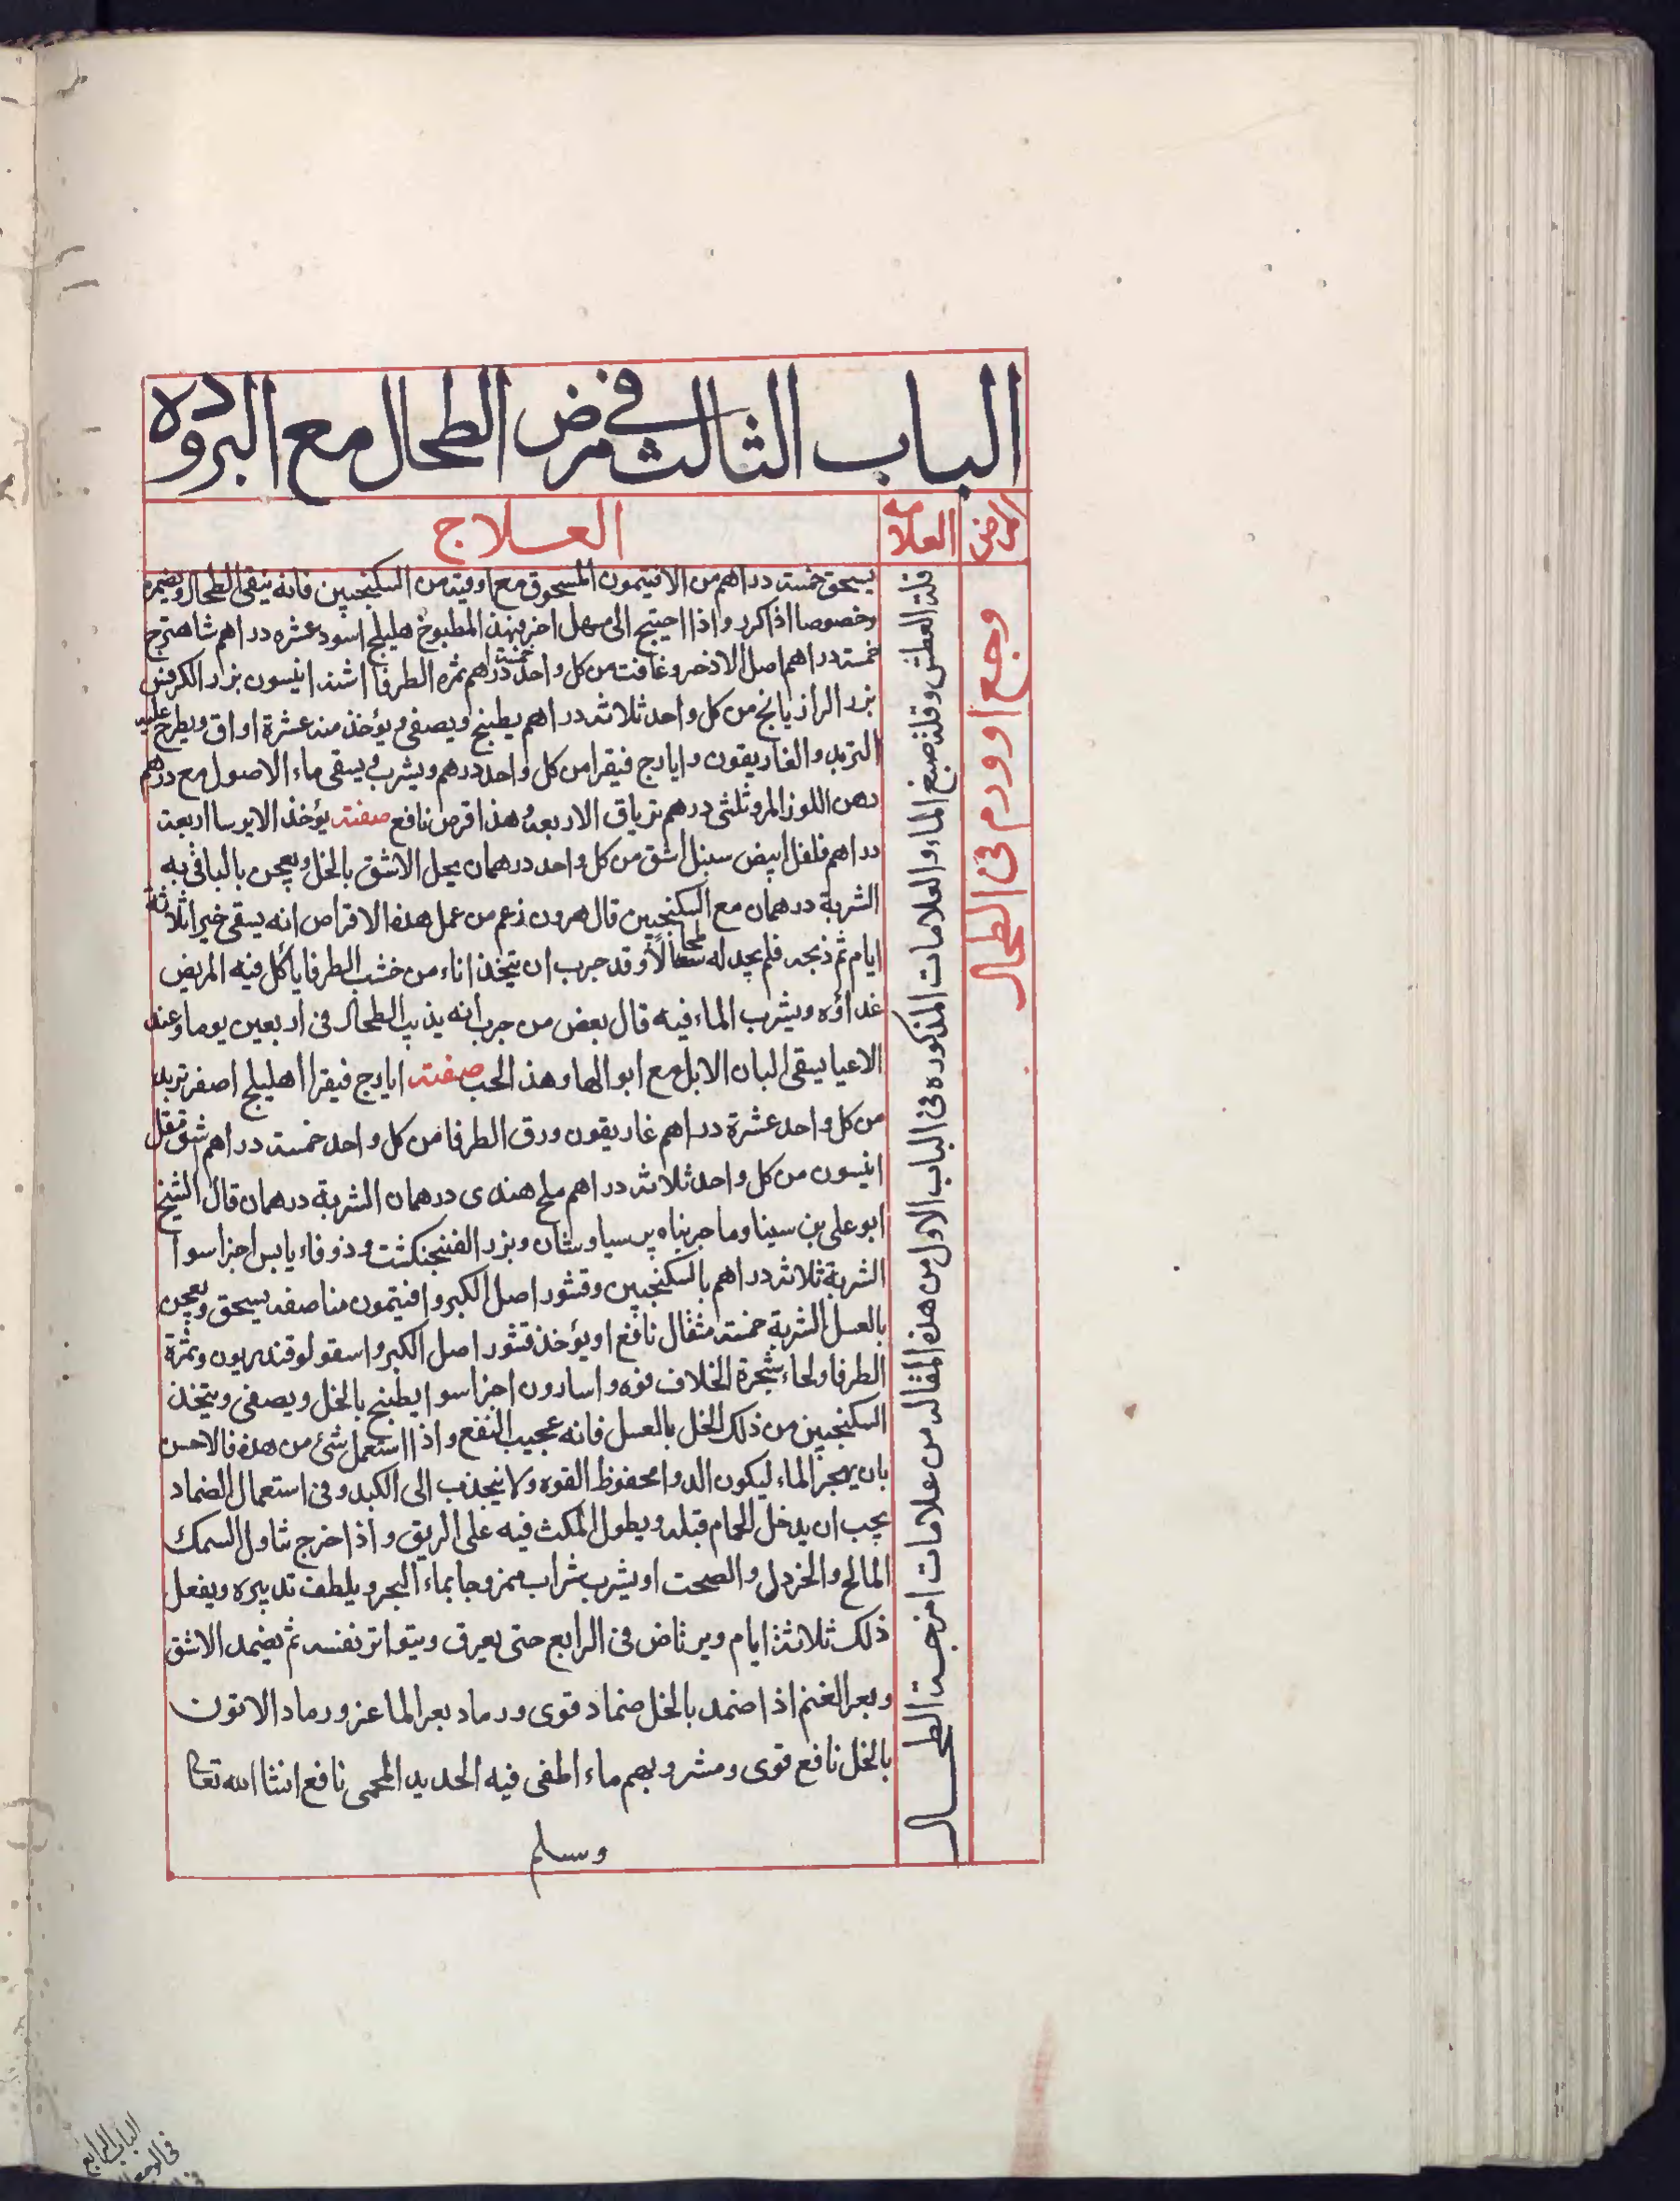 الباب الثالث في مرض الطحال مع البروده
المرض
العلامه
العلاج
وجع اوورم فى الطحال
قلة العطش وقلة صبغ الماء والعلامات المذكوره فى الباب الاول من هذه المقاله من علامات امزجة الطحال
يسحق خمسة دراهم من الافتيمون المسحوق مع اوقيه من السكنجبين فانه ينقى الطحال ويضمره
وخصوصا اذا كرر واذا احتيج الى مسهل اخر فبهذا المطبوخ هليلج اسود عشره دراهم شاهترج
خمسة دراهم اصل الاذخر وغافت من كل واحد خمسة دراهم ثمره الطرفا اشنه انيسون بزر الكرفس
بزر الرازيانج من كل واحد ثلاثه دراهم يطبخ ويصفى ويؤخذ منه عشرة اواق ويطرح عليه
التربد والغاريقون وايارج فيقرا من كل واحد درهم ويشرب ويسقى ماء الاصول مع درهم
دهن اللوز المر وثلثى درهم ترياق الاربعه وهذا قرص نافع صفته يؤخذ الايرسا اربعة
دراهم فلفل ابيض سنبل اشق من كل واحد درهمان يحل الاشق بالخل ويعجن بالباقى به
الشربة درهمان مع السكنجبين قال هرون زعم من عمل هذه الاقراص انه يسقى خنزيرا ثلاثة
ايام ثم ذبحه فلم يجد له طحالا وقد جرب ان يتخذ اناء من خشب الطرفا يأكل فيه المريض
غداؤه ويشرب الماء فيه قال بعض من جرب انه يذيب الطحال فى اربعين يوما وعند
الاعيا يسقى البان الابل مع ابوالها وهذا الحب صفته ايارج فيقرا اهليلج اصفر تربد
من كل واحد عشرة دراهم غاريقون ورق الطرفا من كل واحد خمسة دراهم شق مقل
انيسون من كل واحد ثلاثه دراهم ملح هندى درهمان الشربة درهمان قال الشيخ
ابو على بن سينا وما جربناه برسياوشان وبزر الفنجنكشت وذوفاء يابس اجزا سوا
الشربة ثلاثه دراهم بالسكنجبين وقشور اصل الكبر وافتيمون مناصفه يسحق ويعجن
بالعسل الشربة خمسة مثقال نافع او يؤخذ قشور اصل الكبر واسقولوقندريون وثمرة
الطرفا ولحاء شجرة الخلاف فوه واسارون اجزا سوا يطبخ بالخل ويصفى ويتخذ
السكنجبين من ذلك الخل بالعسل فانه عجيب النفع واذا استعمل شئ من هذه فالاحسن
بان يهجر الماء ليكون الدوا محفوظ القوه ولا ينجذب الى الكبد وفى استعمال الضماد
يجب ان يدخل الحمام قبله ويطول المكث فيه على الريق واذا خرج تناول السمك
المالح والخردل والصحت او يشرب شراب ممزوجا بماء البحر ويلطف تدبيره ويفعل
ذلك ثلاثة ايام ويرتاض فى الرابع حتى يعرق ويتواتر نفسه ثم يضمد الاشق
وبعر الغنم اذا ضمد بالخل ضماد قوى ورماد بعر الماعز ورماد الاتون
بالخل نافع قوى ومشروبهم ماء اطفى فيه الحديد المحمى نافع انشا الله تعا
وسلم
الباب الرابع
فى الوجع